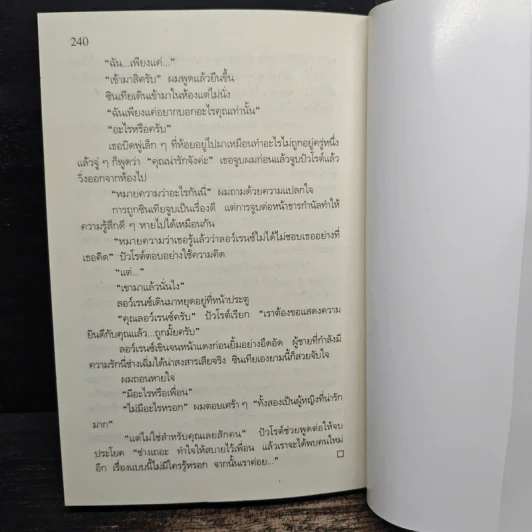 240
“ฉัน...เพียงแค่...”
“เข้ามาสิครับ” ผมพูดแล้วยืนขึ้น
ซินเทียเดินเข้ามาในห้องแต่ไม่นั่ง
“ฉันเพียงแค่อยากบอกอะไรคุณเท่านั้น”
“อะไรหรือครับ”
เธอบิดพู่เล็ก ๆ ที่ห้อยอยู่ไปมาเหมือนทำอะไรไม่ถูกอยู่ครู่หนึ่ง
แล้วจู่ ๆ ก็พูดว่า “คุณน่ารักจังค่ะ” เธอจูบผมก่อนแล้วจูบปัวโรต์แล้ว
วิ่งออกจากห้องไป
“หมายความว่าอะไรกันนี่” ผมถามด้วยความแปลกใจ
การถูกซินเทียจูบเป็นเรื่องดี แต่การจูบต่อหน้าธารกำนัลทำให้
ความรู้สึกดี ๆ หายไปได้เหมือนกัน
“หมายความว่าเธอรู้แล้วว่าลอว์เรนซ์ไม่ได้ไม่ชอบเธออย่างที่
เธอคิด” ปัวโรต์ตอบอย่างใช้ความคิด
“แต่...”
“เขามาแล้วนั่นไง”
ลอว์เรนซ์เดินมาหยุดอยู่ที่หน้าประตู
“คุณลอว์เรนซ์ครับ” ปัวโรต์เรียก “เราต้องขอแสดงความ
ยินดีกับคุณแล้ว...ถูกมั้ยครับ”
ลอว์เรนซ์เขินจนหน้าแดงก่อนยิ้มอย่างอึดอัด ผู้ชายที่กำลังมี
ความรักนี่ช่างเฉิ่มได้น่าสงสารเสียจริง ซินเทียเองยามนี้ก็สวยจับใจ
ผมถอนหายใจ
“มีอะไรหรือเพื่อน”
“ไม่มีอะไรหรอก” ผมตอบเศร้า ๆ “ทั้งสองเป็นผู้หญิงที่น่ารัก
มาก”
“แต่ไม่ใช่สำหรับคุณเลยสักคน” ปัวโรต์ช่วยพูดต่อให้จบ
ประโยค “ช่างเถอะ ทำใจให้สบายไว้เพื่อน แล้วเราจะได้พบคนใหม่
อีก เรื่องแบบนี้ไม่มีใครรู้หรอก จากนั้นเราค่อย...”